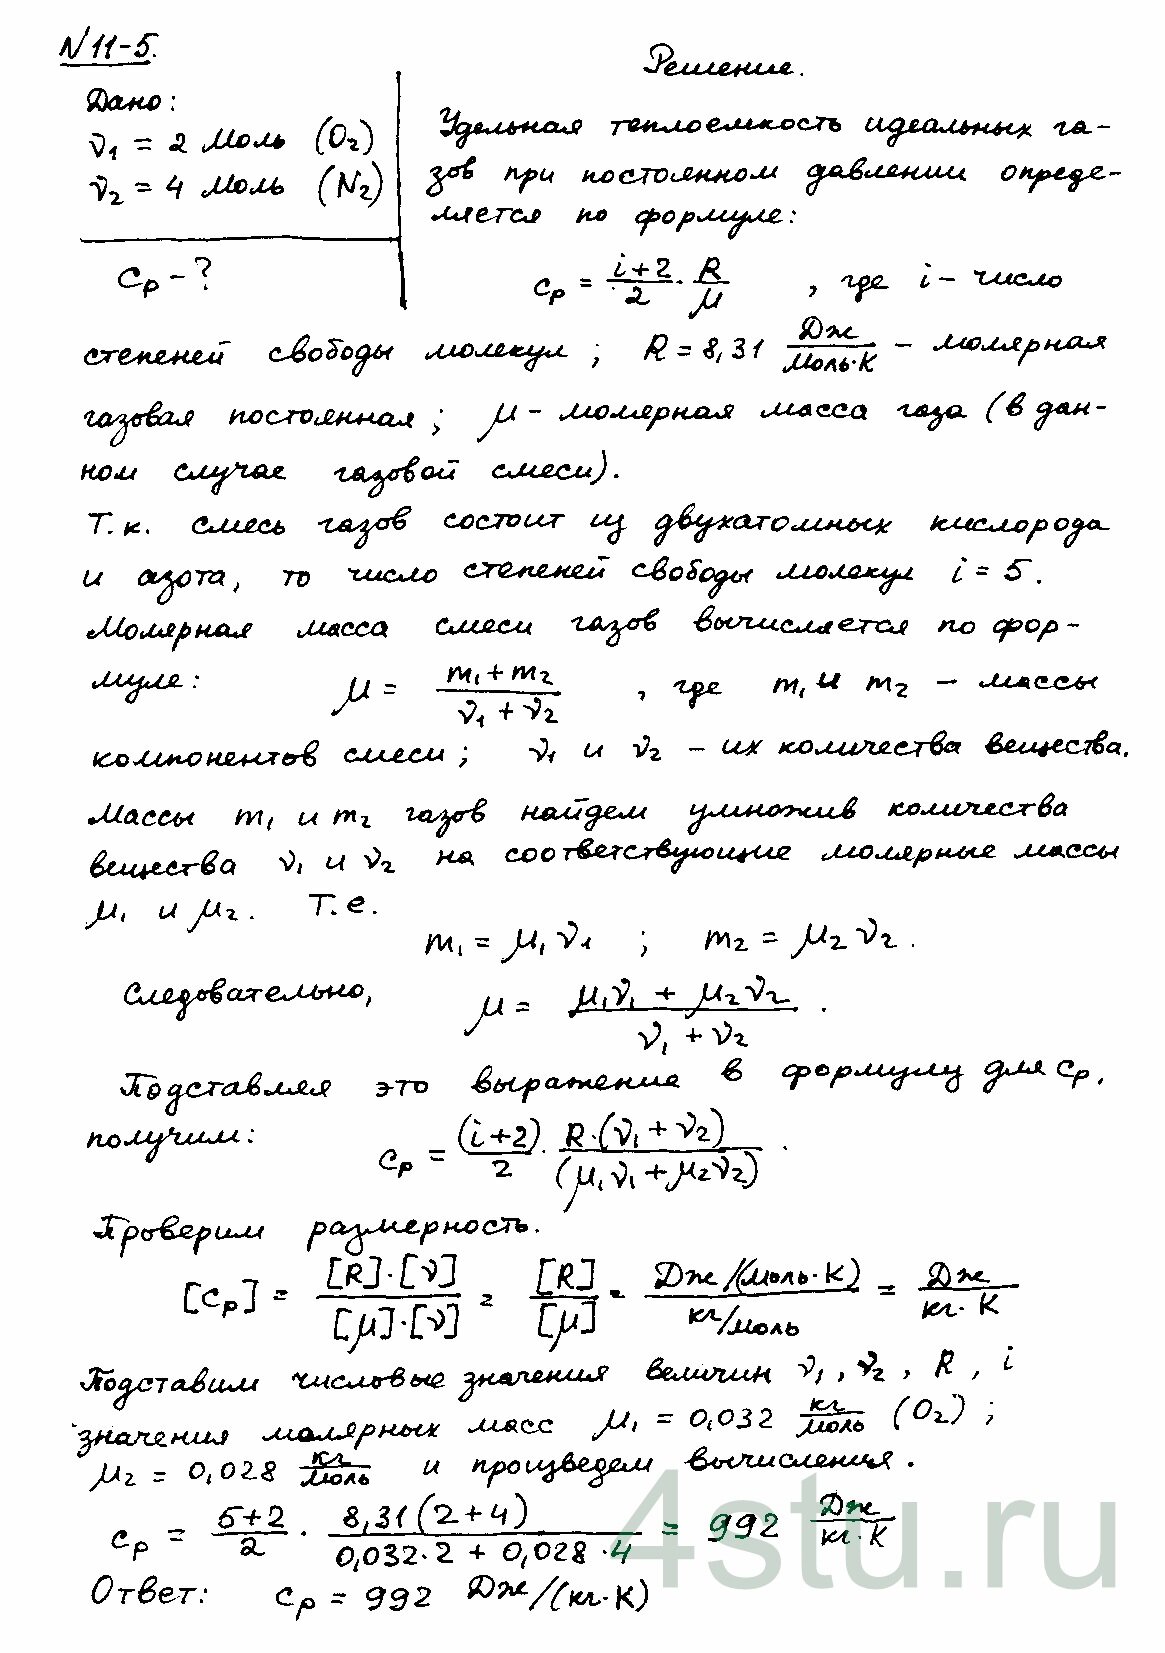 N 11-5.
Решение.
Дано:
ν₁ = 2 моль (O₂)
ν₂ = 4 моль (N₂)
c_p - ?
Удельная теплоемкость идеальных га-
зов при постоянном давлении опреде-
ляется по формуле:
c_p = (i+2)/2 · R/μ , где i - число
степеней свободы молекул ; R = 8,31 Дж/(моль·К) - молярная
газовая постоянная ; μ - молярная масса газа (в дан-
ном случае газовой смеси).
Т.к. смесь газов состоит из двухатомных кислорода
и азота, то число степеней свободы молекул i = 5.
Молярная масса смеси газов вычисляется по фор-
муле: μ = (m₁ + m₂)/(ν₁ + ν₂) , где m₁ и m₂ - массы
компонентов смеси ; ν₁ и ν₂ - их количества вещества.
Массы m₁ и m₂ газов найдем умножив количества
вещества ν₁ и ν₂ на соответствующие молярные массы
μ₁ и μ₂. Т.е.
m₁ = μ₁ν₁ ; m₂ = μ₂ν₂.
Следовательно, μ = (μ₁ν₁ + μ₂ν₂)/(ν₁ + ν₂).
Подставляя это выражение в формулу для c_p,
получим: c_p = (i+2)/2 · R·(ν₁ + ν₂)/(μ₁ν₁ + μ₂ν₂).
Проверим размерность.
[c_p] = [R]·[ν]/[μ]·[ν] = [R]/[μ] = Дж/(моль·К)/кг/моль = Дж/кг·К
Подставим числовые значения величин ν₁, ν₂, R, i
значения молярных масс μ₁ = 0,032 кг/моль (O₂) ;
μ₂ = 0,028 кг/моль и произведем вычисления.
c_p = (5+2)/2 · 8,31(2+4)/(0,032·2 + 0,028·4) = 992 Дж/кг·К
Ответ: c_p = 992 Дж/(кг·К)
4stu.ru